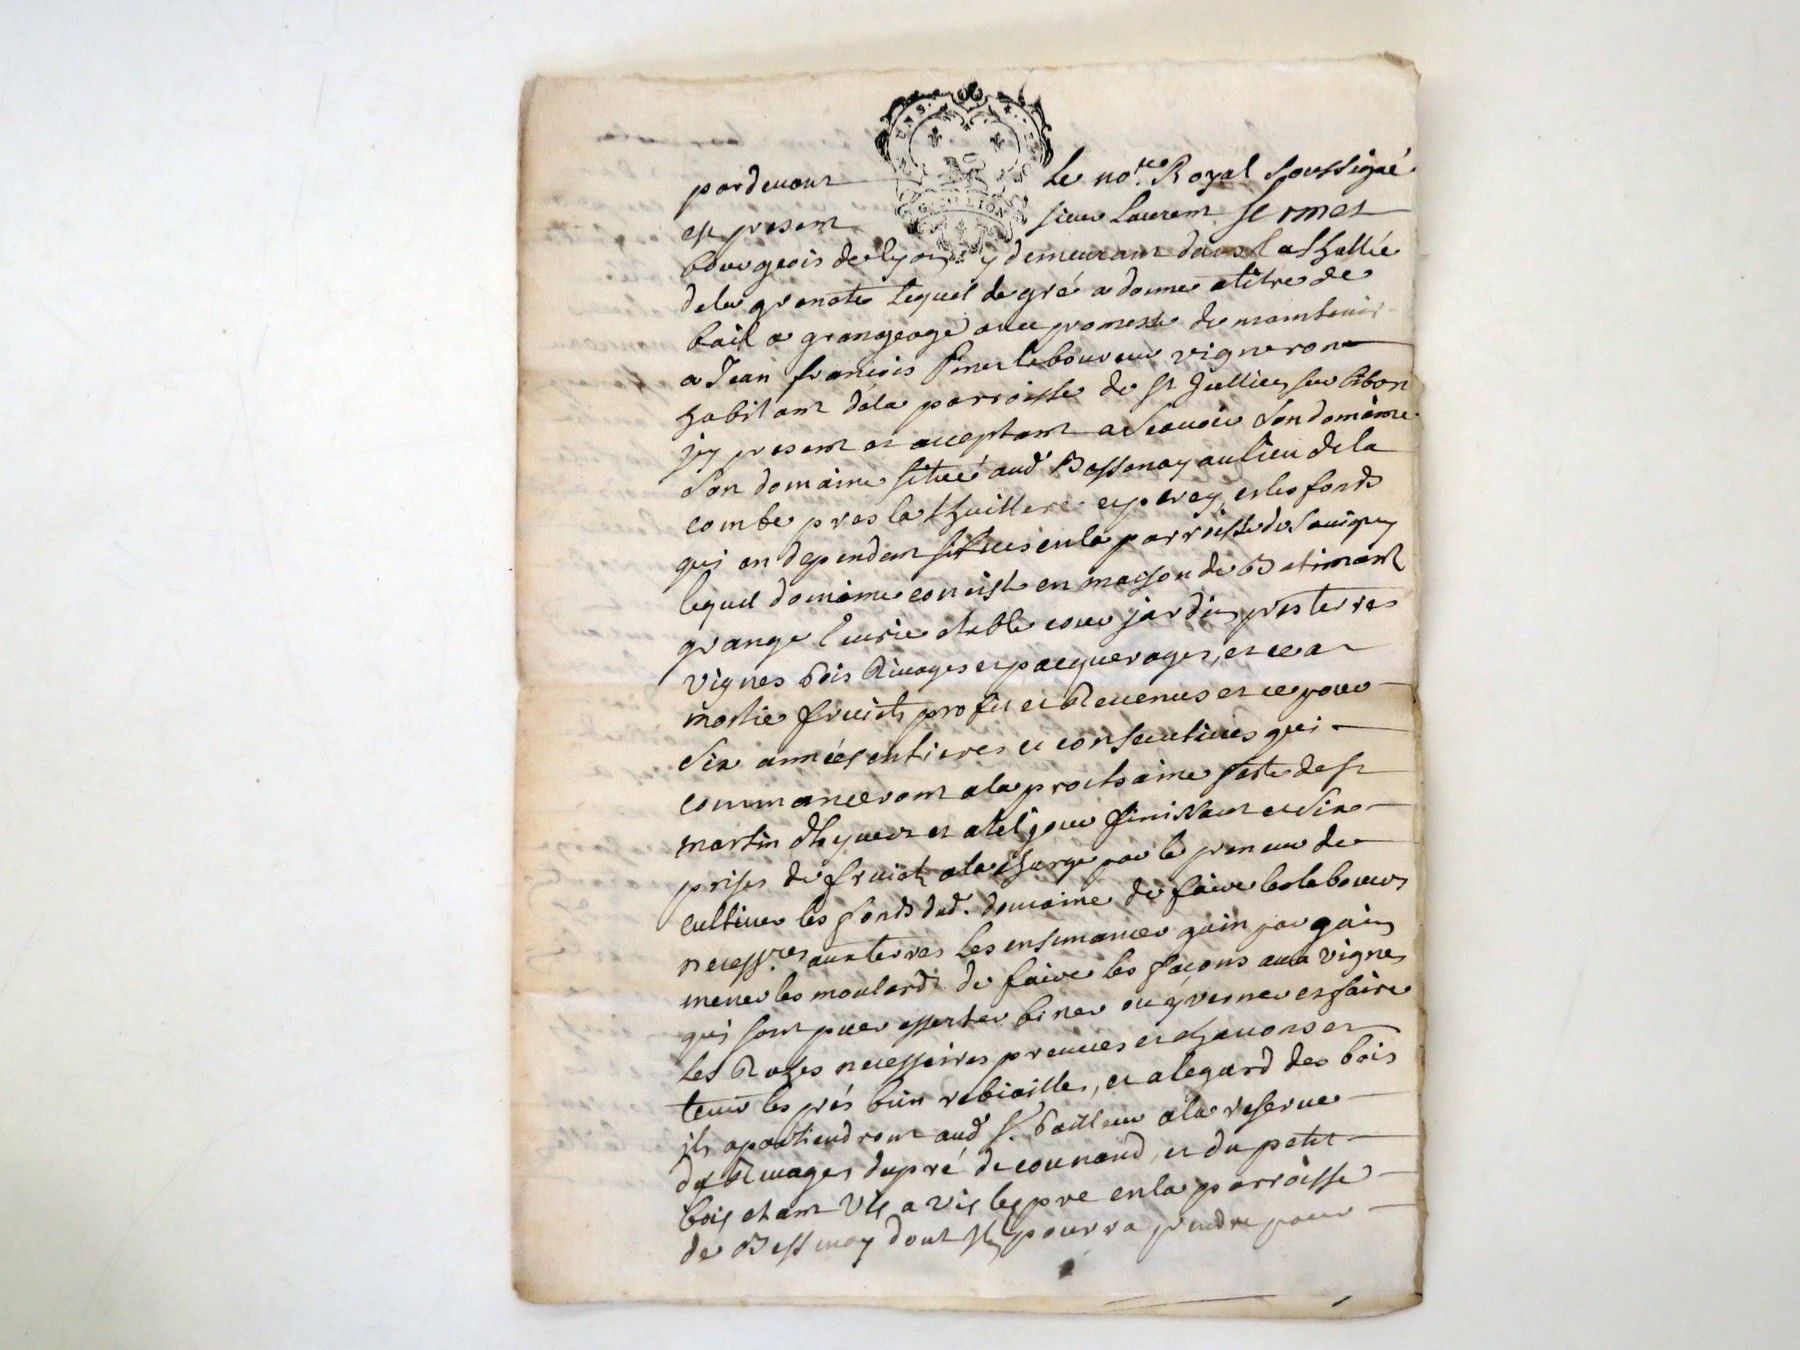 UNS.
G. DE LION
pardevant le no.re Royal soussigné
est present sieur Laurent Sermet
bourgeois de lyon y demeurant dans l allée
dela grenette lequel de gré a donne a titre de
bail a grangeage avec promesse de maintenir
a Jean francois laboureur vigneron
habitant dela parroisse de st Jullien sur bibost
jcy present et acceptant a scavoir son domaine
son domaine situé aud. Bessenay au lieu de la
combe pres la thuillere et les fonds
qui en dependent situes en la parroisse de Savigny
lequel domaine consiste en maison de Batiment
grange Ecurie etable cour jardin pres terres
vignes bois Rivages et pacquerages, et ce a
moitie fruicts profit et Revenus et ce pour
six années entieres et consecutives qui
commanceront a la prochaine feste de st
martin dhyvert et a tel jour finissant et six
prises de fruicts a la charge par le preneur de
cultiver les fonds dud. domaine de faire les labours
necess.res aux terres les ensemancer gain par gain
mener les moulards de faire les façons aux vignes
qui sont puer esserter biner ou yverner et faire
les Razes necessaires preuves et chavons et
tenir les prés bien rebiailles, et a legard des bois
ils apartiendront aud. s.r bailleur a la reserve
des Rivages du pré de counand, et du petit
bois etant vis a vis les pre en la parroisse
de Bessenay dont il pourra prendre pour